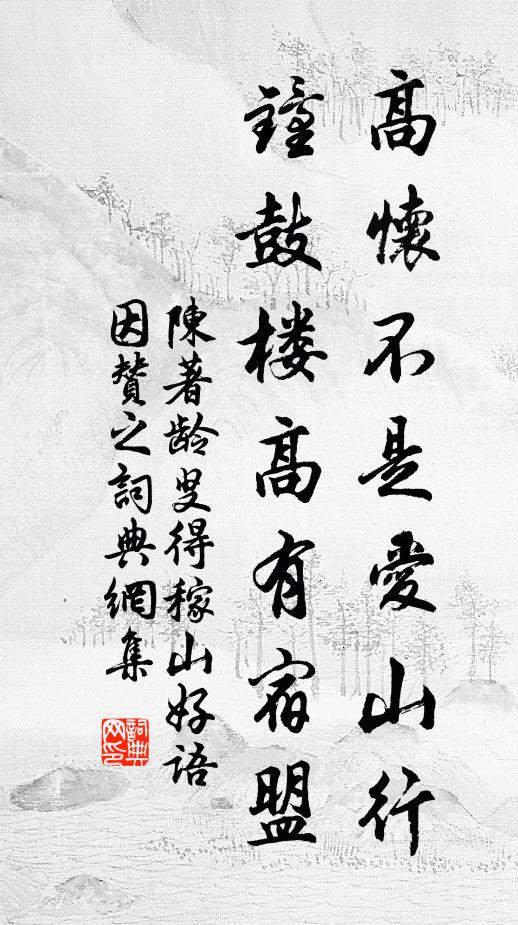 高懷不是愛山行
鐘鼓楼高有宿盟
陳著龄叟得稼山好語
因贊之詞典網集
詞典網印